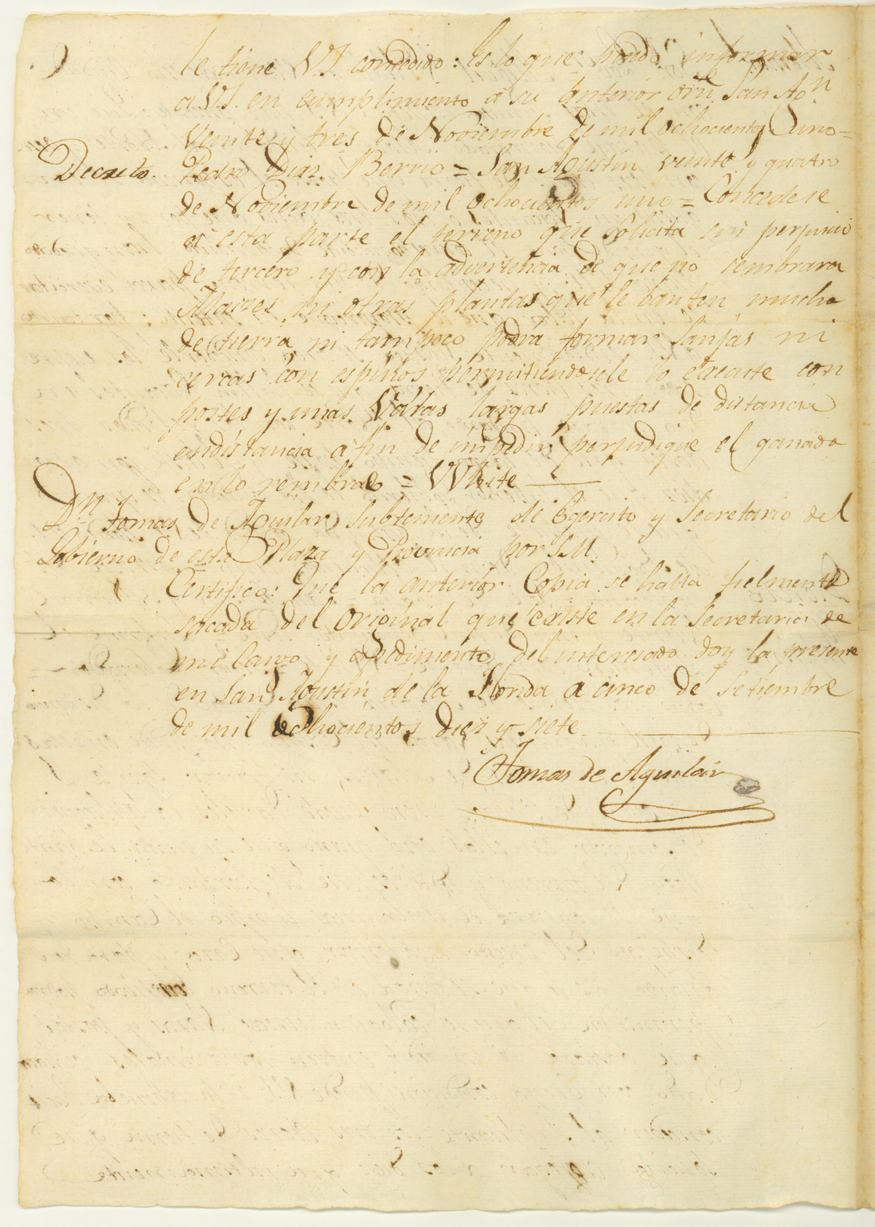 le tiene V.S. consedido: Es lo que puedo informar
a V.S. en cumplimiento a su anterior orn. San Agn
veinte y tres de Noviembre de mil ochocientos uno =
Decreto. Pedro Diaz Berrio = San Agustin veinte y quatro
de Noviembre de mil ochocientos uno = Concedese
a esta parte el terreno que solicita sin perjuicio
de tercero y con la advertencia de que no sembrara
ni otras plantas que le banten mucho
de tierra, ni tampoco podrá formar sanjas ni
cercas con espinos permitiendosele lo execute con
postes y unas Varas largas puestas de distancia
endistancia a fin de impedir perjudique el ganado
enlo sembrado = White
Dn Tomas de Aguilar Subteniente de Egercito y Secretario del
Gobierno de esta Plaza y Provincia por S.M.
Certifico: Que la anterior Copia se halla fielmente
sacada del Original que existe en la Secretaria de
mi cargo y a pedimento del interesado doy la presente
en San Agustin de la Florida á cinco de Setiembre
de mil ochocientos diez y siete.
Tomas de Aguilar